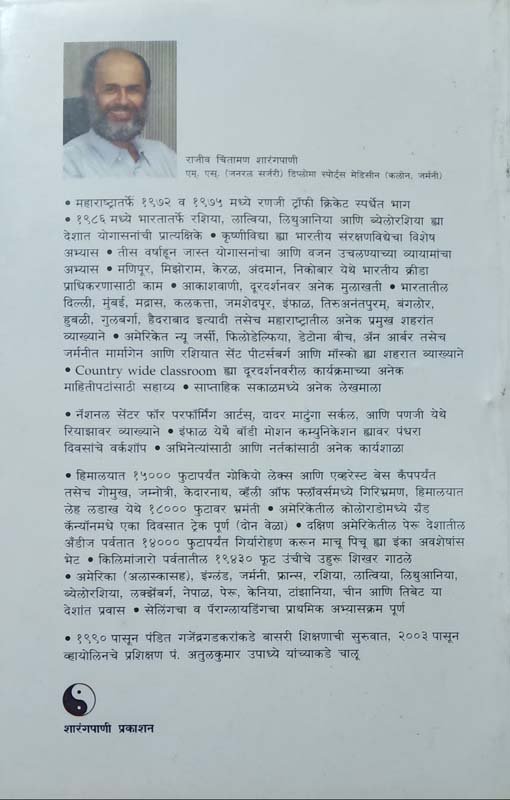 राजीव चिंतामण शारंगपाणी
एम्. एस्. (जनरल सर्जरी) डिप्लोमा स्पोर्ट्स मेडिसीन (कलोन, जर्मनी)
• महाराष्ट्रातर्फे १९७२ व १९७५ मध्ये रणजी ट्रॉफी क्रिकेट स्पर्धेत भाग
• १९८६ मध्ये भारतातर्फे रशिया, लात्विया, लिथुआनिया आणि ब्येलोरशिया ह्या
देशात योगासनांची प्रात्यक्षिके • कृष्णीविद्या ह्या भारतीय संरक्षणविद्येचा विशेष
अभ्यास • तीस वर्षांहून जास्त योगासनांचा आणि वजन उचलण्याच्या व्यायामांचा
अभ्यास • मणिपूर, मिझोराम, केरळ, अंदमान, निकोबार येथे भारतीय क्रीडा
प्राधिकरणासाठी काम • आकाशवाणी, दूरदर्शनवर अनेक मुलाखती • भारतातील
दिल्ली, मुंबई, मद्रास, कलकत्ता, जमशेदपूर, इंफाळ, तिरुअनंतपुरम्, बंगलोर,
हुबळी, गुलबर्गा, हैदराबाद इत्यादी तसेच महाराष्ट्रातील अनेक प्रमुख शहरांत
व्याख्याने • अमेरिकेत न्यू जर्सी, फिलोडेल्फिया, डेटोना बीच, ॲन आर्बर तसेच
जर्मनीत मार्मागेन आणि रशियात सेंट पीटर्सबर्ग आणि मॉस्को ह्या शहरात व्याख्याने
• Country wide classroom ह्या दूरदर्शनवरील कार्यक्रमाच्या अनेक
माहितीपटांसाठी सहाय्य • साप्ताहिक सकाळमध्ये अनेक लेखमाला
• नॅशनल सेंटर फॉर परफॉर्मिंग आर्टस्, दादर माटुंगा सर्कल, आणि पणजी येथे
रियाझावर व्याख्याने • इंफाळ येथे बॉडी मोशन कम्युनिकेशन ह्यावर पंधरा
दिवसांचे वर्कशॉप • अभिनेत्यांसाठी आणि नर्तकांसाठी अनेक कार्यशाळा
• हिमालयात १५००० फुटापर्यंत गोकियो लेक्स आणि एव्हरेस्ट बेस कँपपर्यंत
तसेच गोमुख, जम्नोत्री, केदारनाथ, व्हॅली ऑफ फ्लॉवर्समध्ये गिरिभ्रमण, हिमालयात
लेह लडाख येथे १८००० फुटावर भ्रमंती • अमेरिकेतील कोलोराडोमध्ये ग्रँड
कॅन्यॉनमधे एका दिवसात ट्रेक पूर्ण (दोन वेळा) • दक्षिण अमेरिकेतील पेरू देशातील
अँडीज पर्वतात १४००० फुटापर्यंत गिर्यारोहण करून माचू पिचू ह्या इंका अवशेषांस
भेट • किलिमांजारो पर्वतातील १९४३० फूट उंचीचे उहुरू शिखर गाठले
• अमेरिका (अलास्कासह), इंग्लंड, जर्मनी, फ्रान्स, रशिया, लात्विया, लिथुआनिया,
ब्येलोरशिया, लक्झेंबर्ग, नेपाळ, पेरू, केनिया, टांझानिया, चीन आणि तिबेट या
देशांत प्रवास • सेलिंगचा व पॅराग्लायडिंगचा प्राथमिक अभ्यासक्रम पूर्ण
• १९९० पासून पंडित गजेंद्रगडकरांकडे बासरी शिक्षणाची सुरुवात, २००३ पासून
व्हायोलिनचे प्रशिक्षण पं. अतुलकुमार उपाध्ये यांच्याकडे चालू
शारंगपाणी प्रकाशन